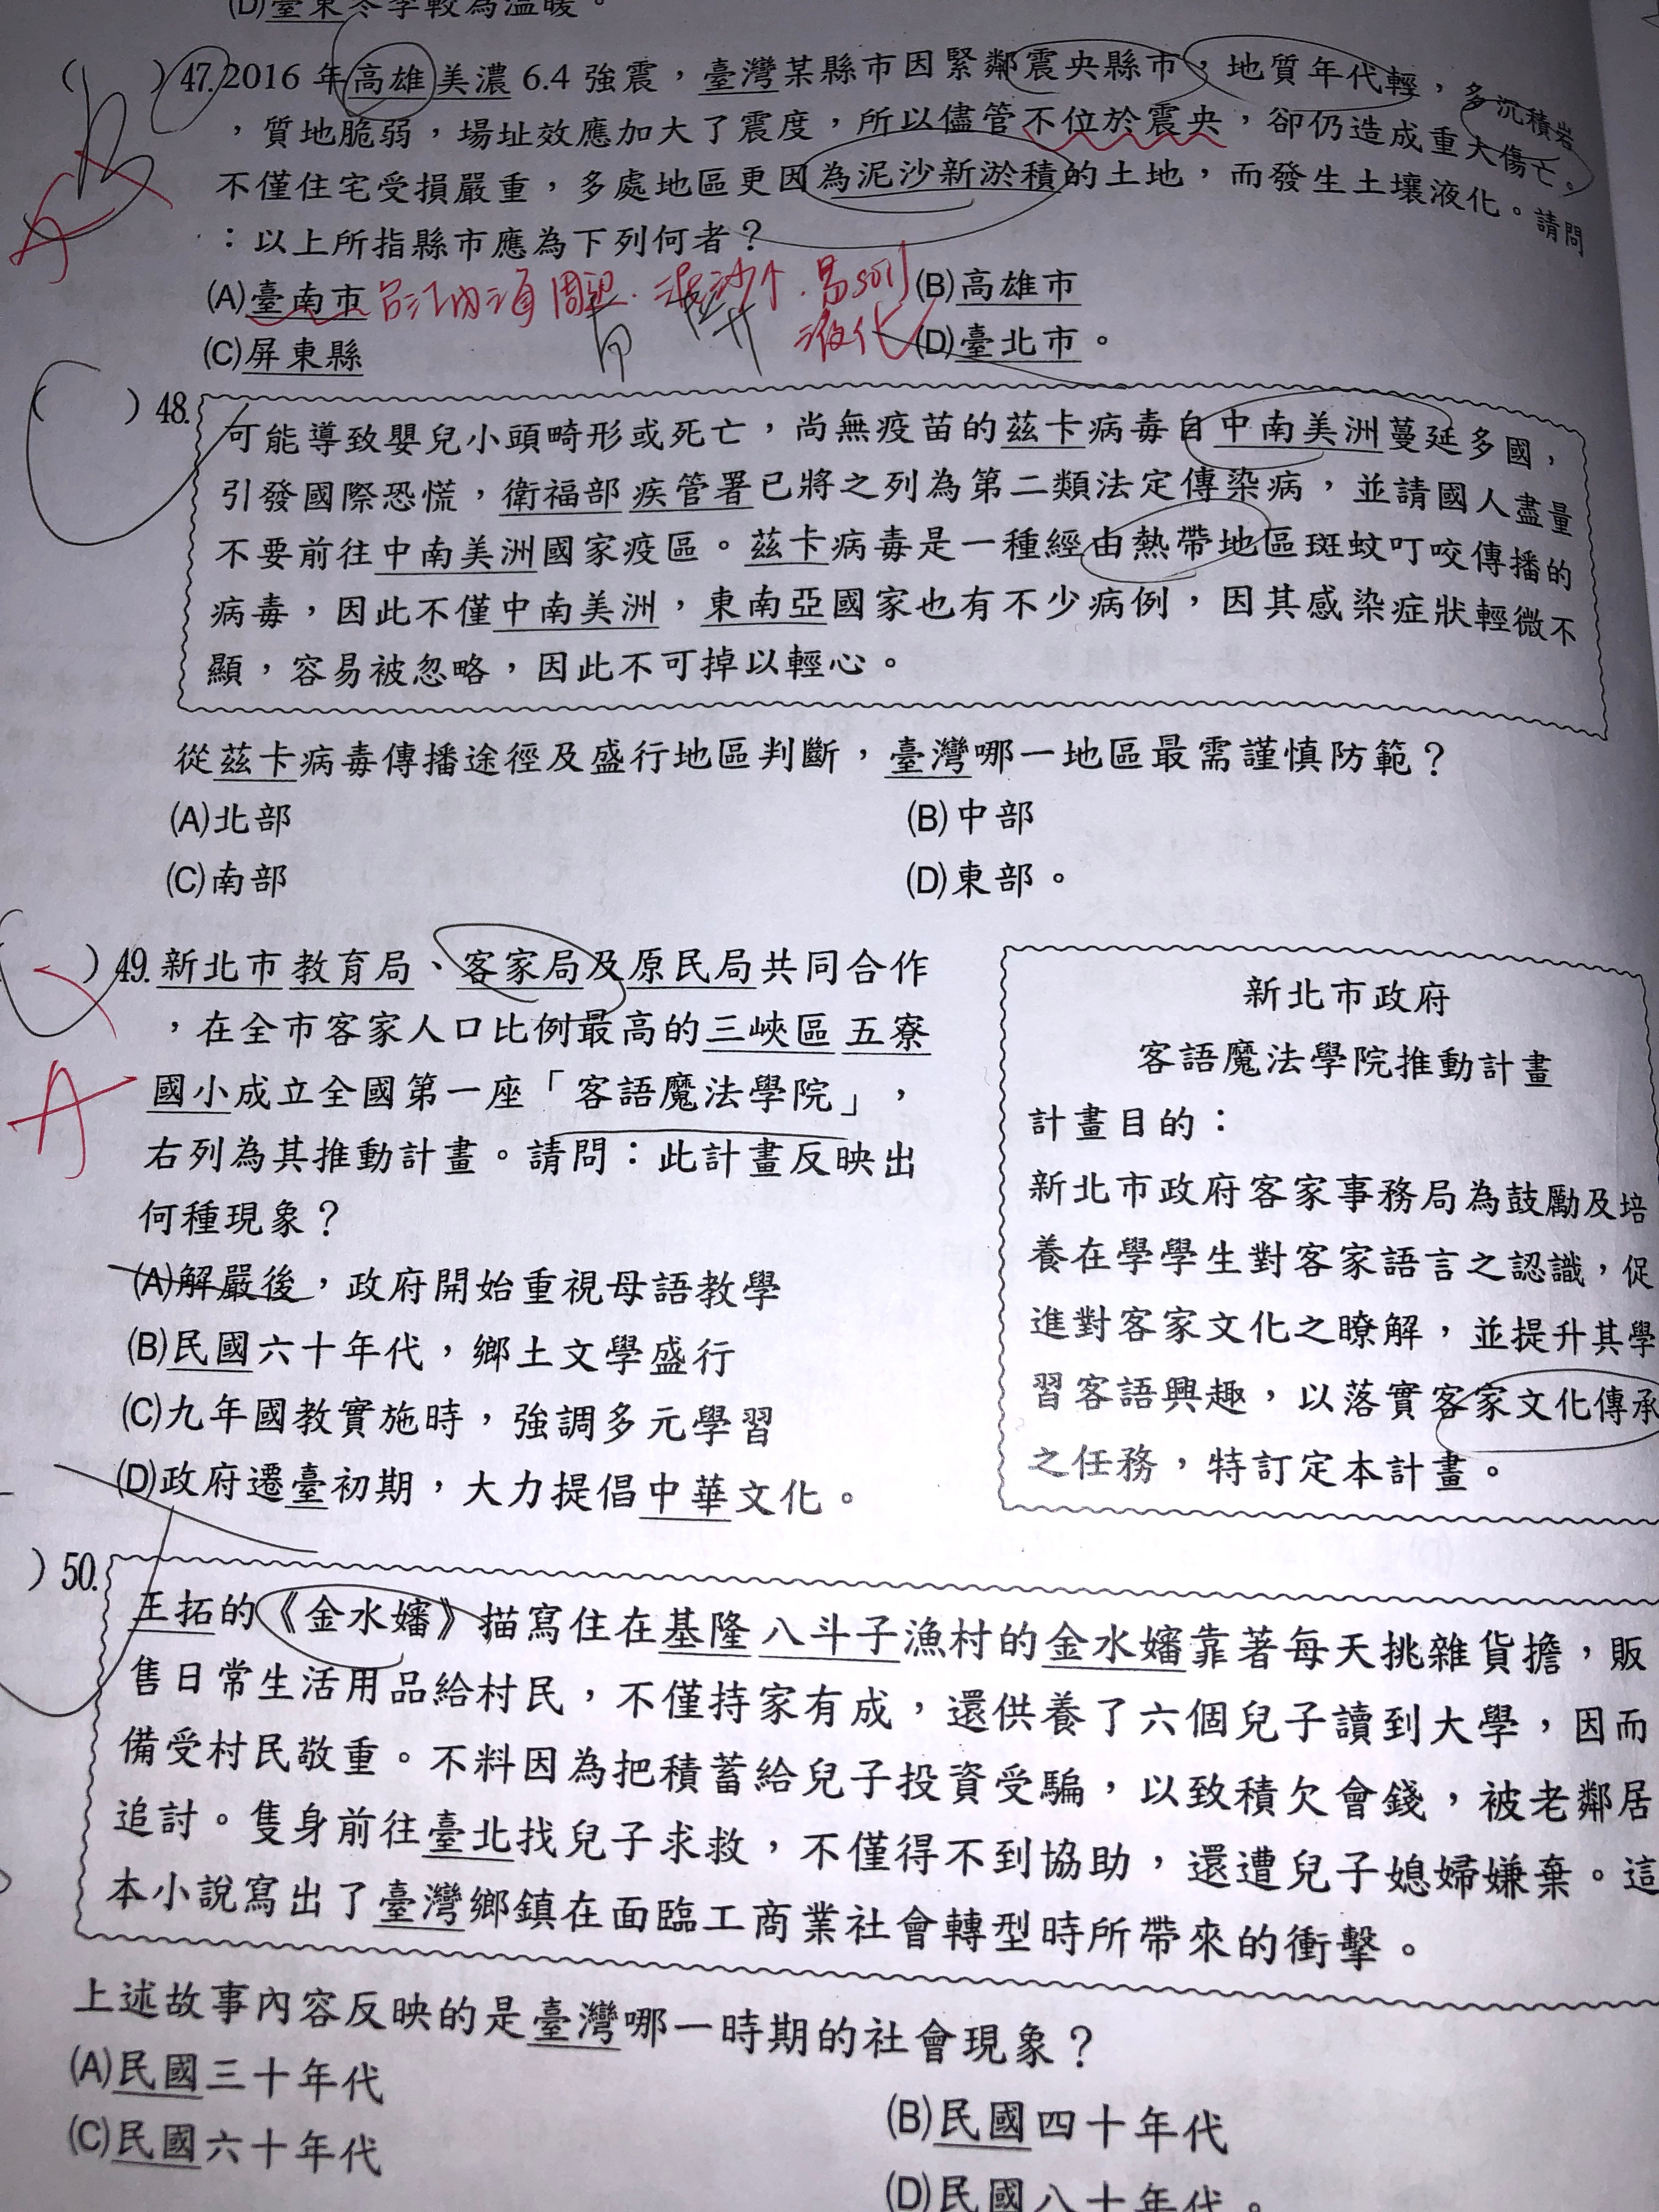 (D)臺東冬季較為溫暖。
( b )47.2016年高雄美濃6.4強震，臺灣某縣市因緊鄰震央縣市，地質年代輕，多沉積岩
，質地脆弱，場址效應加大了震度，所以儘管不位於震央，卻仍造成重大傷亡。
不僅住宅受損嚴重，多處地區更因為泥沙新淤積的土地，而發生土壤液化。請問
：以上所指縣市應為下列何者？
A
(A)臺南市
台江內海周邊.泥沙个.易
液化
(B)高雄市
(C)屏東縣
(D)臺北市。
( C )48.
可能導致嬰兒小頭畸形或死亡，尚無疫苗的茲卡病毒自中南美洲蔓延多國，
引發國際恐慌，衛福部疾管署已將之列為第二類法定傳染病，並請國人盡量
不要前往中南美洲國家疫區。茲卡病毒是一種經由熱帶地區斑蚊叮咬傳播的
病毒，因此不僅中南美洲，東南亞國家也有不少病例，因其感染症狀輕微不
顯，容易被忽略，因此不可掉以輕心。
從茲卡病毒傳播途徑及盛行地區判斷，臺灣哪一地區最需謹慎防範？
(A)北部
(B)中部
(C)南部
(D)東部。
)49.新北市教育局、客家局及原民局共同合作
，在全市客家人口比例最高的三峽區五寮
國小成立全國第一座「客語魔法學院」，
右列為其推動計畫。請問：此計畫反映出
何種現象？
A
(A)解嚴後，政府開始重視母語教學
(B)民國六十年代，鄉土文學盛行
(C)九年國教實施時，強調多元學習
(D)政府遷臺初期，大力提倡中華文化。
新北市政府
客語魔法學院推動計畫
計畫目的：
新北市政府客家事務局為鼓勵及培
養在學學生對客家語言之認識，促
進對客家文化之瞭解，並提升其學
習客語興趣，以落實客家文化傳承
之任務，特訂定本計畫。
)50.
王拓的《金水嬸》描寫住在基隆八斗子漁村的金水嬸靠著每天挑雜貨擔，販
售日常生活用品給村民，不僅持家有成，還供養了六個兒子讀到大學，因而
備受村民敬重。不料因為把積蓄給兒子投資受騙，以致積欠會錢，被老鄰居
追討。隻身前往臺北找兒子求救，不僅得不到協助，還遭兒子媳婦嫌棄。這
本小說寫出了臺灣鄉鎮在面臨工商業社會轉型時所帶來的衝擊。
上述故事內容反映的是臺灣哪一時期的社會現象？
(A)民國三十年代
(B)民國四十年代
(C)民國六十年代
(D)民國八十年代。